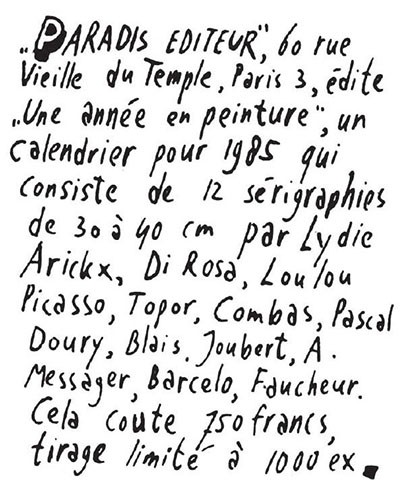 „PARADIS EDITEUR", 60 rue
Vieille du Temple, Paris 3, édite
„Une année en peinture", un
calendrier pour 1985 qui
consiste de 12 sérigraphies
de 30 à 40 cm par Lydie
Arickx, Di Rosa, Loulou
Picasso, Topor, Combas, Pascal
Doury, Blais, Joubert, A.
Messager, Barcelo, Faucheur.
Cela coute 750 francs,
tirage limité à 1000 ex.